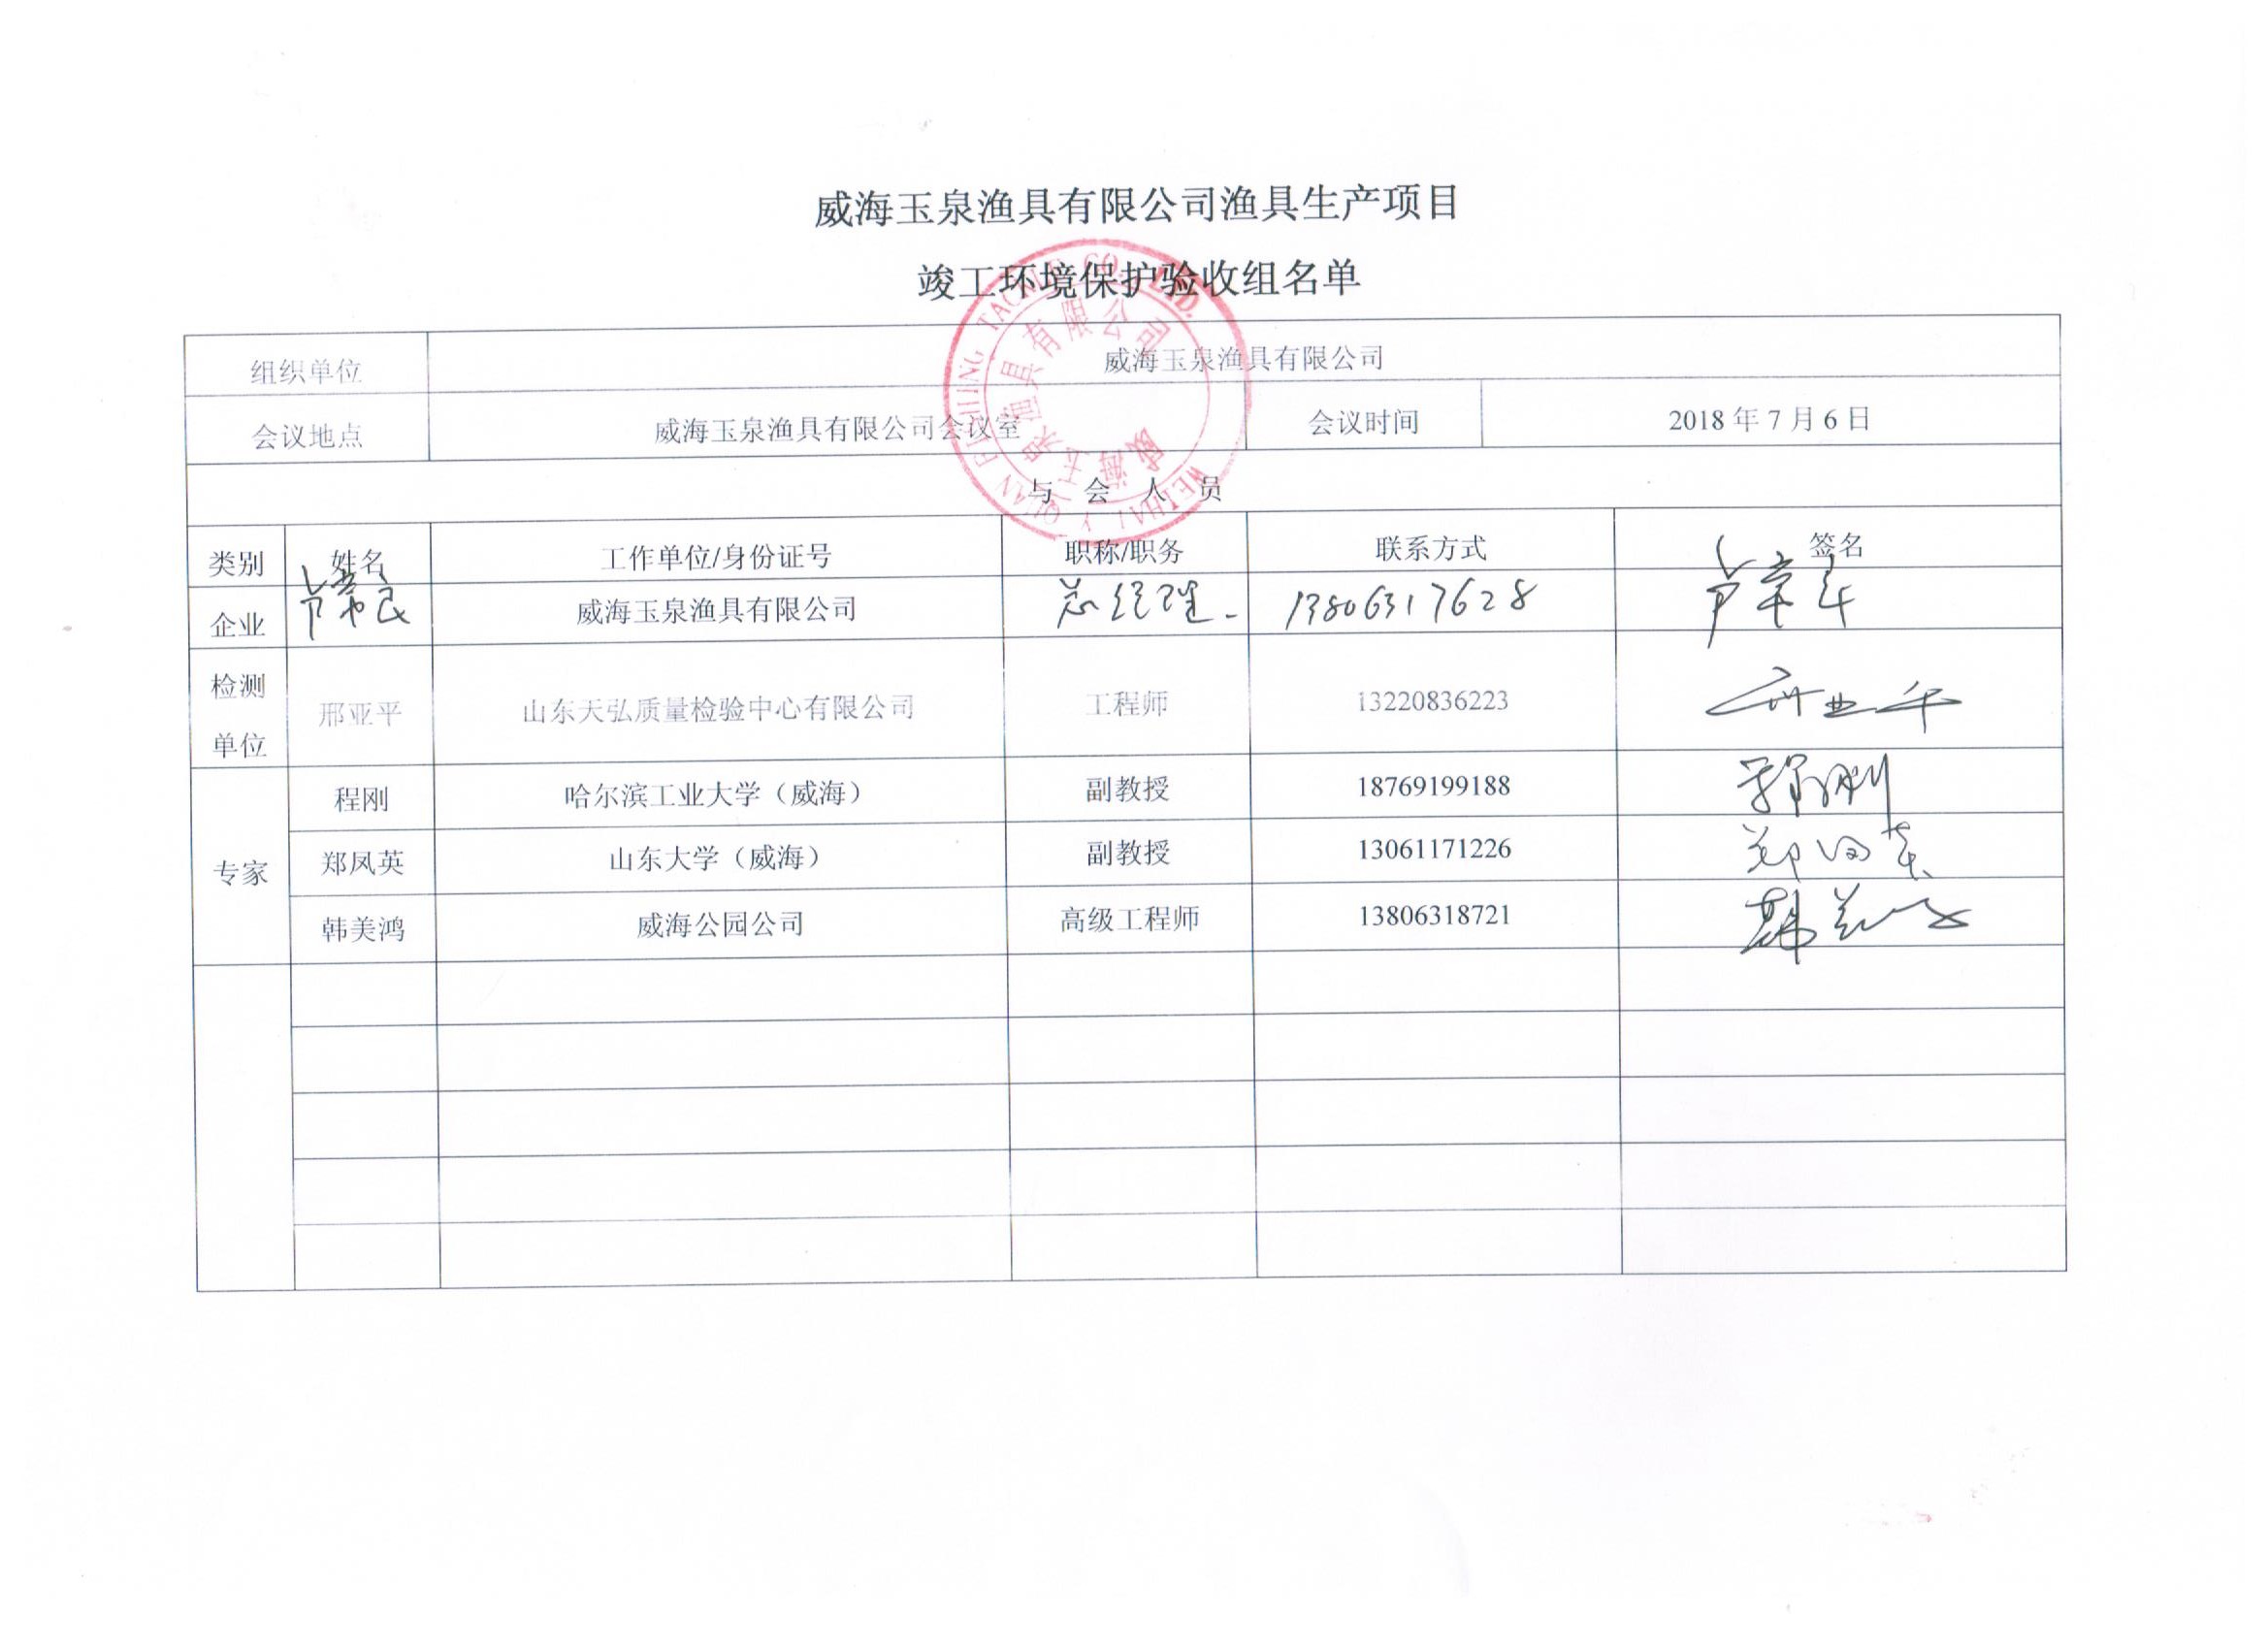 威海玉泉渔具有限公司渔具生产项目
竣工环境保护验收组名单
组织单位 威海玉泉渔具有限公司
会议地点 威海玉泉渔具有限公司会议室 会议时间 2018 年 7 月 6 日
与 会 人 员
类别 姓名 工作单位/身份证号 职称/职务 联系方式 签名
企业 威海玉泉渔具有限公司 总经理 13806317628
检测单位 邢亚平 山东天弘质量检验中心有限公司 工程师 13220836223 邢亚平
专家 程刚 哈尔滨工业大学（威海） 副教授 18769199188 程刚
郑凤英 山东大学（威海） 副教授 13061171226 郑凤英
韩美鸿 威海公园公司 高级工程师 13806318721 韩美鸿
威海玉泉渔具有限公司
WEIHAI YUQUAN FISHING TACKLE CO., LTD.